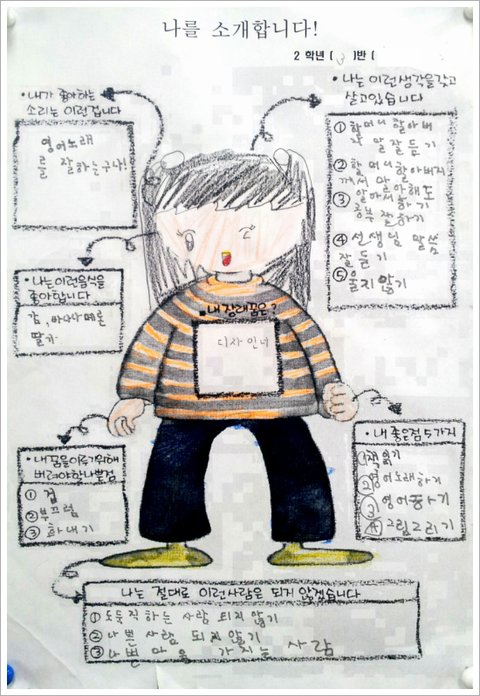 나를 소개합니다!
2 학년 ( 3 )반 (
•내가 좋아하는
소리는 이런겁니다
영어노래
를 잘하는구나!
•나는 이런생각을갖고
살고있습니다
① 할머니 할아버
지 말 잘 듣기
② 할머니할아버지
께서 말 안해도
③ 알아서하기
공부 잘하기
④ 선생님 말씀
잘 듣기
⑤ 울지 않기
•나는이런음식을
좋아합니다
감, 바나나 메론
딸기
•내 장래꿈은?
디자인너
•내꿈을이루기위해
버려야할나쁜점
① 겁
② 부끄럼
③ 화내기
•내 좋은점 5가지
①책 읽기
②영어노래하기
③ 영어하기
④ 그림그리기
나는 절대로 이런사람은 되지 않겠습니다
① 도둑직하는 사람 되지 않기
② 나쁜 사람 되지 않기
③ 나쁜 마음 가지는 사람